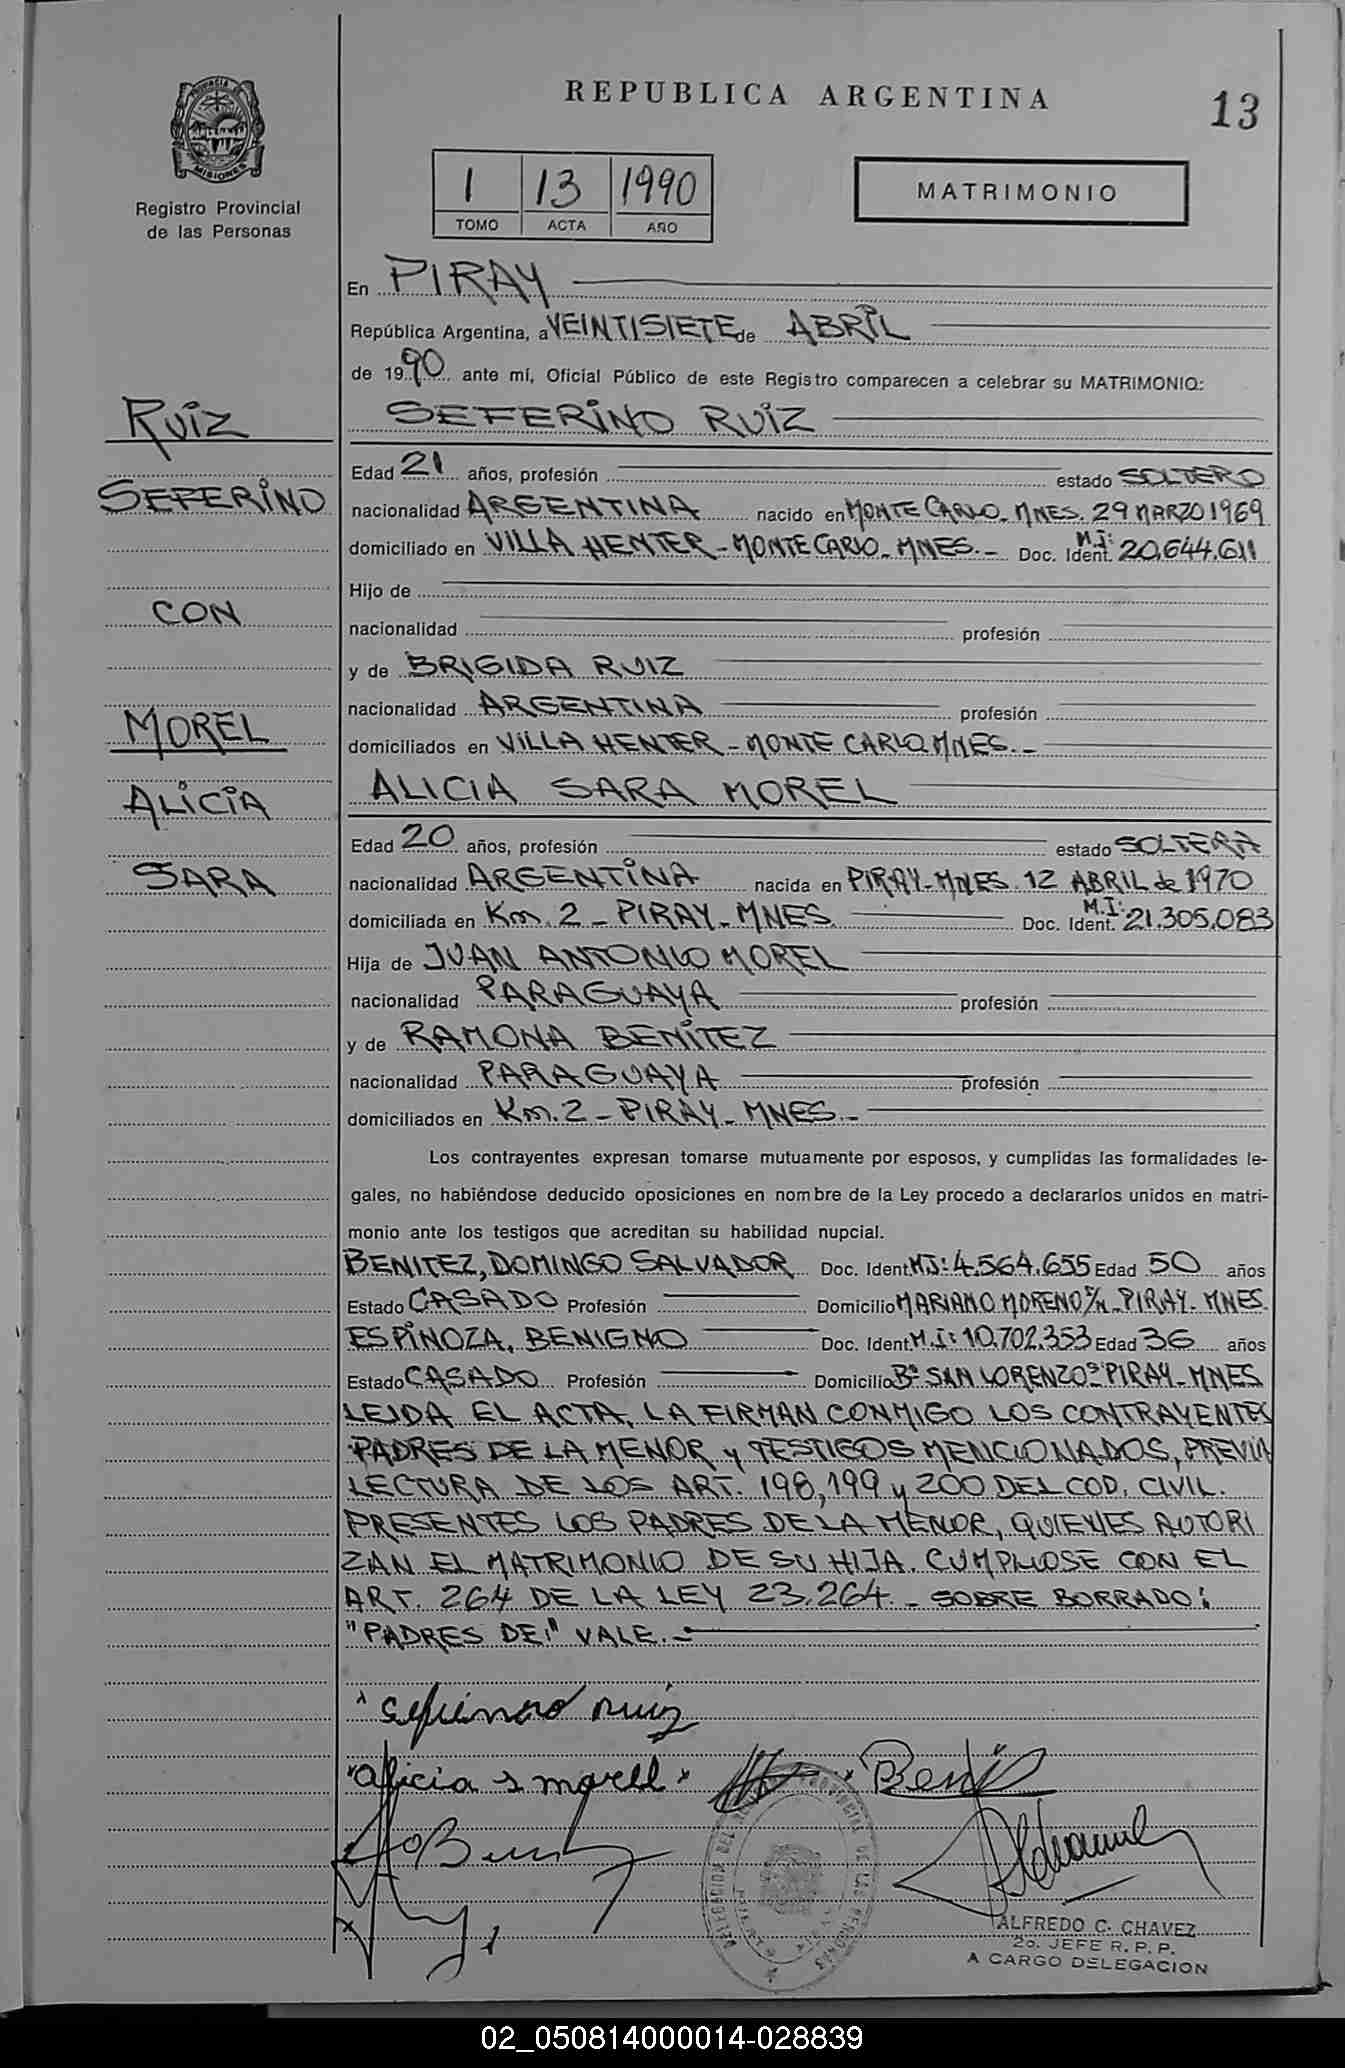 REPUBLICA ARGENTINA
13
PROVINCIA DE
MISIONES
Registro Provincial
de las Personas
1 13 1990
TOMO ACTA AÑO
MATRIMONIO
En PIRAY
República Argentina, a VEINTISIETE de ABRIL
de 1990 ante mí, Oficial Público de este Registro comparecen a celebrar su MATRIMONIO:
RUIZ
SEFERINO
CON
MOREL
ALICIA
SARA
SEFERINO RUIZ
Edad 21 años, profesión estado SOLTERO
nacionalidad ARGENTINA nacido en MONTE CARLO - MNES. 29 MARZO 1969
domiciliado en VILLA HENTER - MONTE CARLO - MNES. - Doc. Ident. M.I: 20.644.611
Hijo de
nacionalidad profesión
y de BRIGIDA RUIZ
nacionalidad ARGENTINA profesión
domiciliados en VILLA HENTER - MONTE CARLO MNES. -
ALICIA SARA MOREL
Edad 20 años, profesión estado SOLTERA
nacionalidad ARGENTINA nacida en PIRAY - MNES. 12 ABRIL de 1970
domiciliada en Km. 2 - PIRAY - MNES. Doc. Ident. M.I: 21.305.083
Hija de JUAN ANTONIO MOREL
nacionalidad PARAGUAYA profesión
y de RAMONA BENITEZ
nacionalidad PARAGUAYA profesión
domiciliados en Km. 2 - PIRAY - MNES. -
Los contrayentes expresan tomarse mutuamente por esposos, y cumplidas las formalidades le-
gales, no habiéndose deducido oposiciones en nombre de la Ley procedo a declararlos unidos en matri-
monio ante los testigos que acreditan su habilidad nupcial.
BENITEZ, DOMINGO SALVADOR Doc. Ident. M.I: 4.564.655 Edad 50 años
Estado CASADO Profesión Domicilio MARIANO MORENO S/N - PIRAY - MNES.
ESPINOZA, BENIGNO Doc. Ident. M.I: 10.702.353 Edad 36 años
Estado CASADO Profesión Domicilio Bº SAN LORENZO - PIRAY - MNES
LEIDA EL ACTA, LA FIRMAN CONMIGO LOS CONTRAYENTES
PADRES DE LA MENOR y TESTIGOS MENCIONADOS, PREVIA
LECTURA DE LOS ART. 198, 199 y 200 DEL COD. CIVIL.
PRESENTES LOS PADRES DE LA MENOR, QUIENES AUTORI
ZAN EL MATRIMONIO DE SU HIJA. CUMPLIOSE CON EL
ART. 264 DE LA LEY 23.264. - SOBRE BORRADO:
"PADRES DE:" VALE. -
seferino ruiz
alicia s morel
ALFREDO C. CHAVEZ
2o. JEFE R. P. P.
A CARGO DELEGACION
02_050814000014-028839